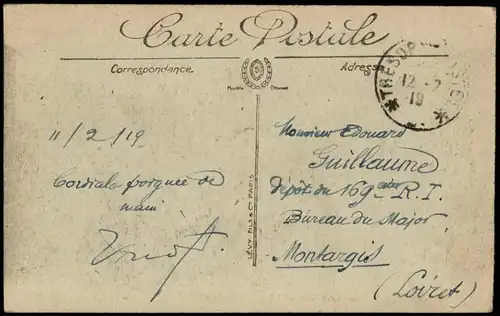 Carte Postale
Correspondance
Adresse
Modèle Déposé
TRESOR
12 - 2
19
11/2/19
Cordiale poignée de
main
LÉVY FILS & Cie PARIS
Monsieur Edouard
Guillaume
dépôt du 169eme R. I.
Bureau du Major
Montargis
(Loiret)